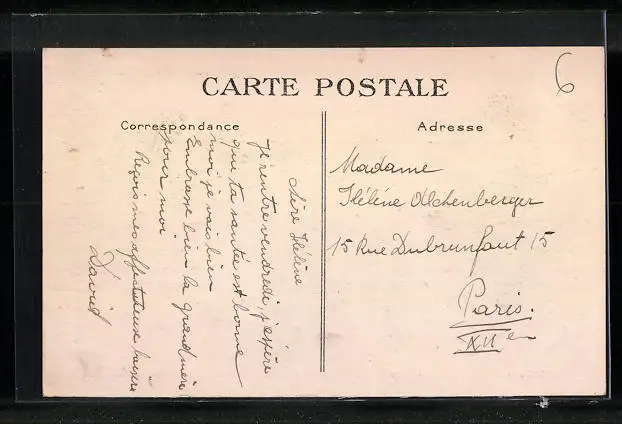 CARTE POSTALE
Correspondance
Adresse
6
Hélène
Je rentre vendredi, j'espère
que ta santée est bonne
moi je vais bien
Embrasse bien la grand mère
pour moi
Reçois mes affectueux baisers
David
Madame
Hélène Alchenberger
15 Rue Dubrunfaut 15
Paris.
XII e